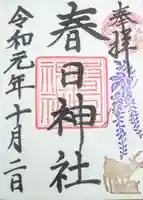 奉拝
春日神社
令和元年十月二日